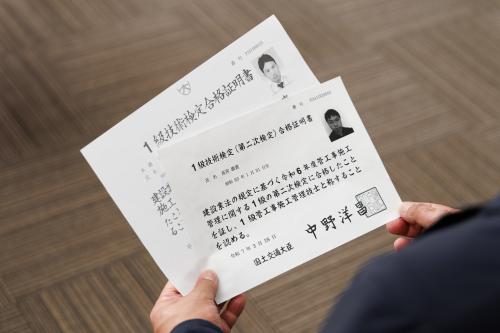 1級技術検定合格証明書
建設
施工
たこと
る。
1級技術検定(第二次検定)合格証明書
氏名
昭和
建設業法の規定に基づく令和6年度管工事施工
管理に関する1級の第二次検定に合格したこと
を証し、1級管工事施工管理技士と称すること
を認める。
令和7年3月
国土交通大臣
中野洋昌